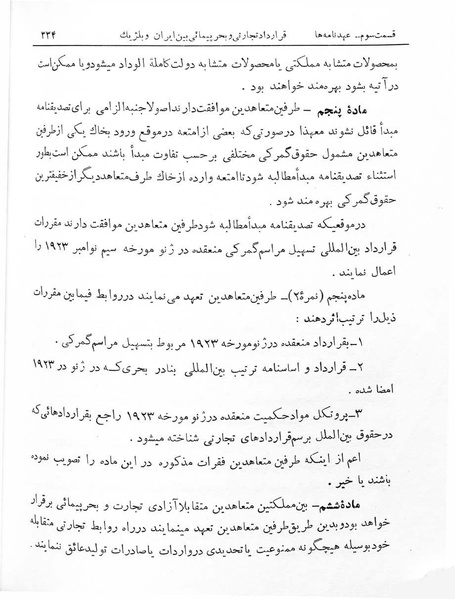 قسمت سوم ـ عهدنامه‌ها قرارداد تجارتی و بحرپیمائی بین ایران و بلژیك ۲۳۴
بمحصولات مشابه مملکتی یا محصولات متشابه دولت کاملة الوداد میشود و یا ممکن است
در آتیه بشود بهره‌مند خواهند بود .
مادهٔ پنجم ـ طرفین متعاهدین موافقت دارند اصولا جنبه الزامی برای تصدیقنامه
مبدأ قائل نشوند معهذا در صورتی که بعضی از امتعه در موقع ورود بخاك یکی از طرفین
متعاهدین مشمول حقوق گمرکی مختلفی بر حسب تفاوت مبدأ باشند ممکن است بطور
استثناء تصدیقنامه مبدأ مطالبه شود تا امتعه وارده از خاك طرف متعاهد دیگر از خفیفترین
حقوق گمرکی بهره مند شود .
در موقعیکه تصدیقنامه مبدأ مطالبه شود طرفین متعاهدین موافقت دارند مقررات
قرارداد بین‌المللی تسهیل مراسم گمرکی منعقده در ژنو مورخه سیم نوامبر ۱۹۲۳ را
اعمال نمایند .
ماده پنجم (نمرهٔ ۲)ـ طرفین متعاهدین تعهد می نمایند در روابط فیمابین مقررات
ذیل را ترتیب اثر دهند :
۱ـ بقرارداد منعقده در ژنو مورخه ۱۹۲۳ مربوط بتسهیل مراسم گمرکی .
۲ـ قرارداد و اساسنامه ترتیب بین‌المللی بنادر بحری که در ژنو در ۱۹۲۳
امضا شده .
۳ـ پروتکل مواد حکمیت منعقده در ژنو مورخه ۱۹۲۳ راجع بقراردادهائی که
در حقوق بین‌الملل برسم قراردادهای تجارتی شناخته میشود .
اعم از اینکه طرفین متعاهدین فقرات مذکوره در این ماده را تصویب نموده
باشند یا خیر .
مادهٔ ششم ـ بین مملکتین متعاهدین متقابلا آزادی تجارت و بحرپیمائی برقرار
خواهد بود و بدین طریق طرفین متعاهدین تعهد مینمایند در راه روابط تجارتی متقابله
خود بوسیله هیچگونه ممنوعیت یا تحدیدی در واردات یا صادرات تولید عائق ننمایند .